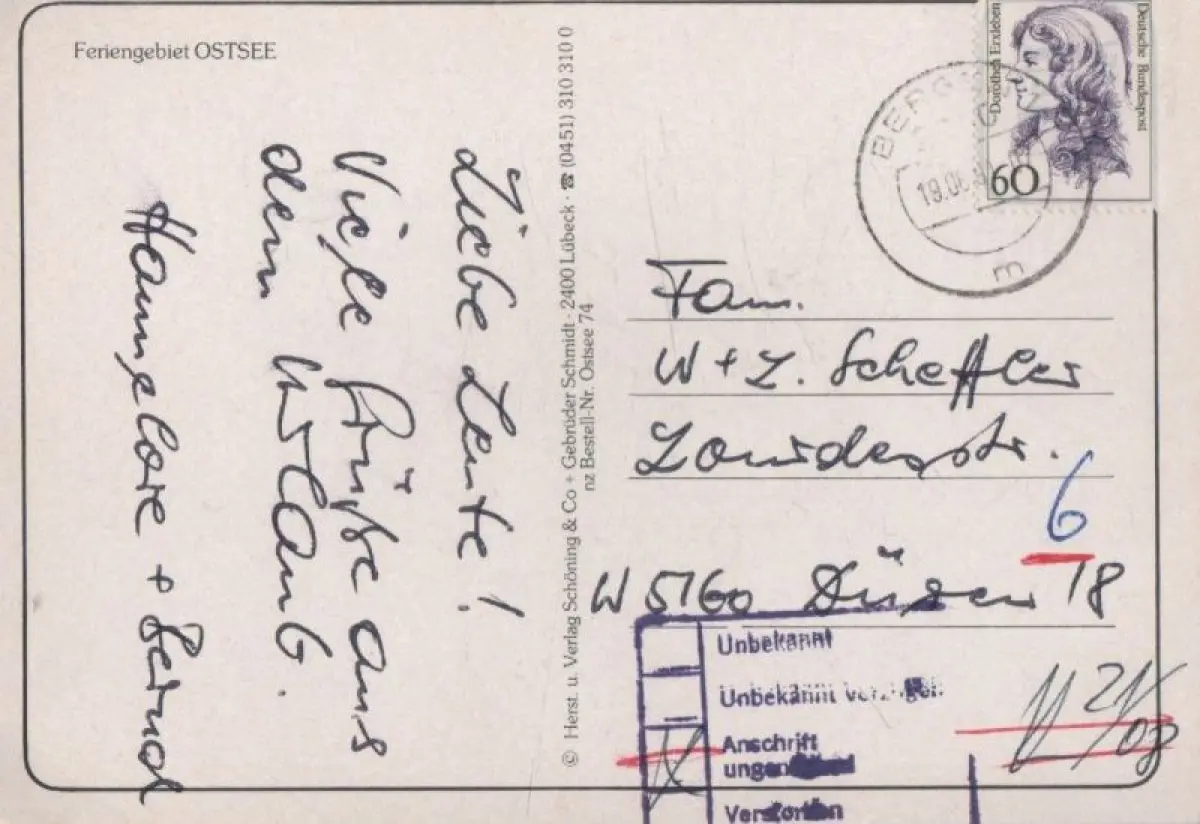 Feriengebiet OSTSEE
Liebe Leute!
Viele Grüße aus
dem Urlaub.
Hannelore + Bernd
© Herst. u. Verlag Schöning & Co + Gebrüder Schmidt · 2400 Lübeck · ☎ (0451) 310 310 0
nz Bestell-Nr. Ostsee 74
Deutsche Bundespost
Dorothea Erxleben
60
BERG
19.08
m
Fam.
W + L. Scheffler
6
W 5160 Düren 18
Unbekannt
Unbekannt verzogen
Anschrift
Verstorben